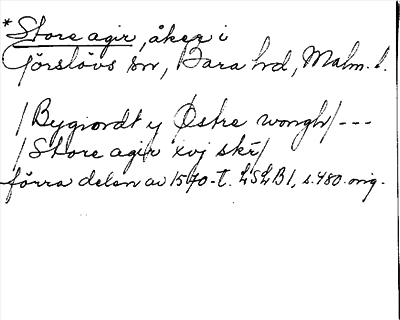 *Store agir, åker i
Görslövs sn, Bara hd, Malm. l.
/Bygiordt y Østre wongh/ ---
/Store agir xvj skr/
förra delen av 1570-t. LSLB1, s.480. orig.